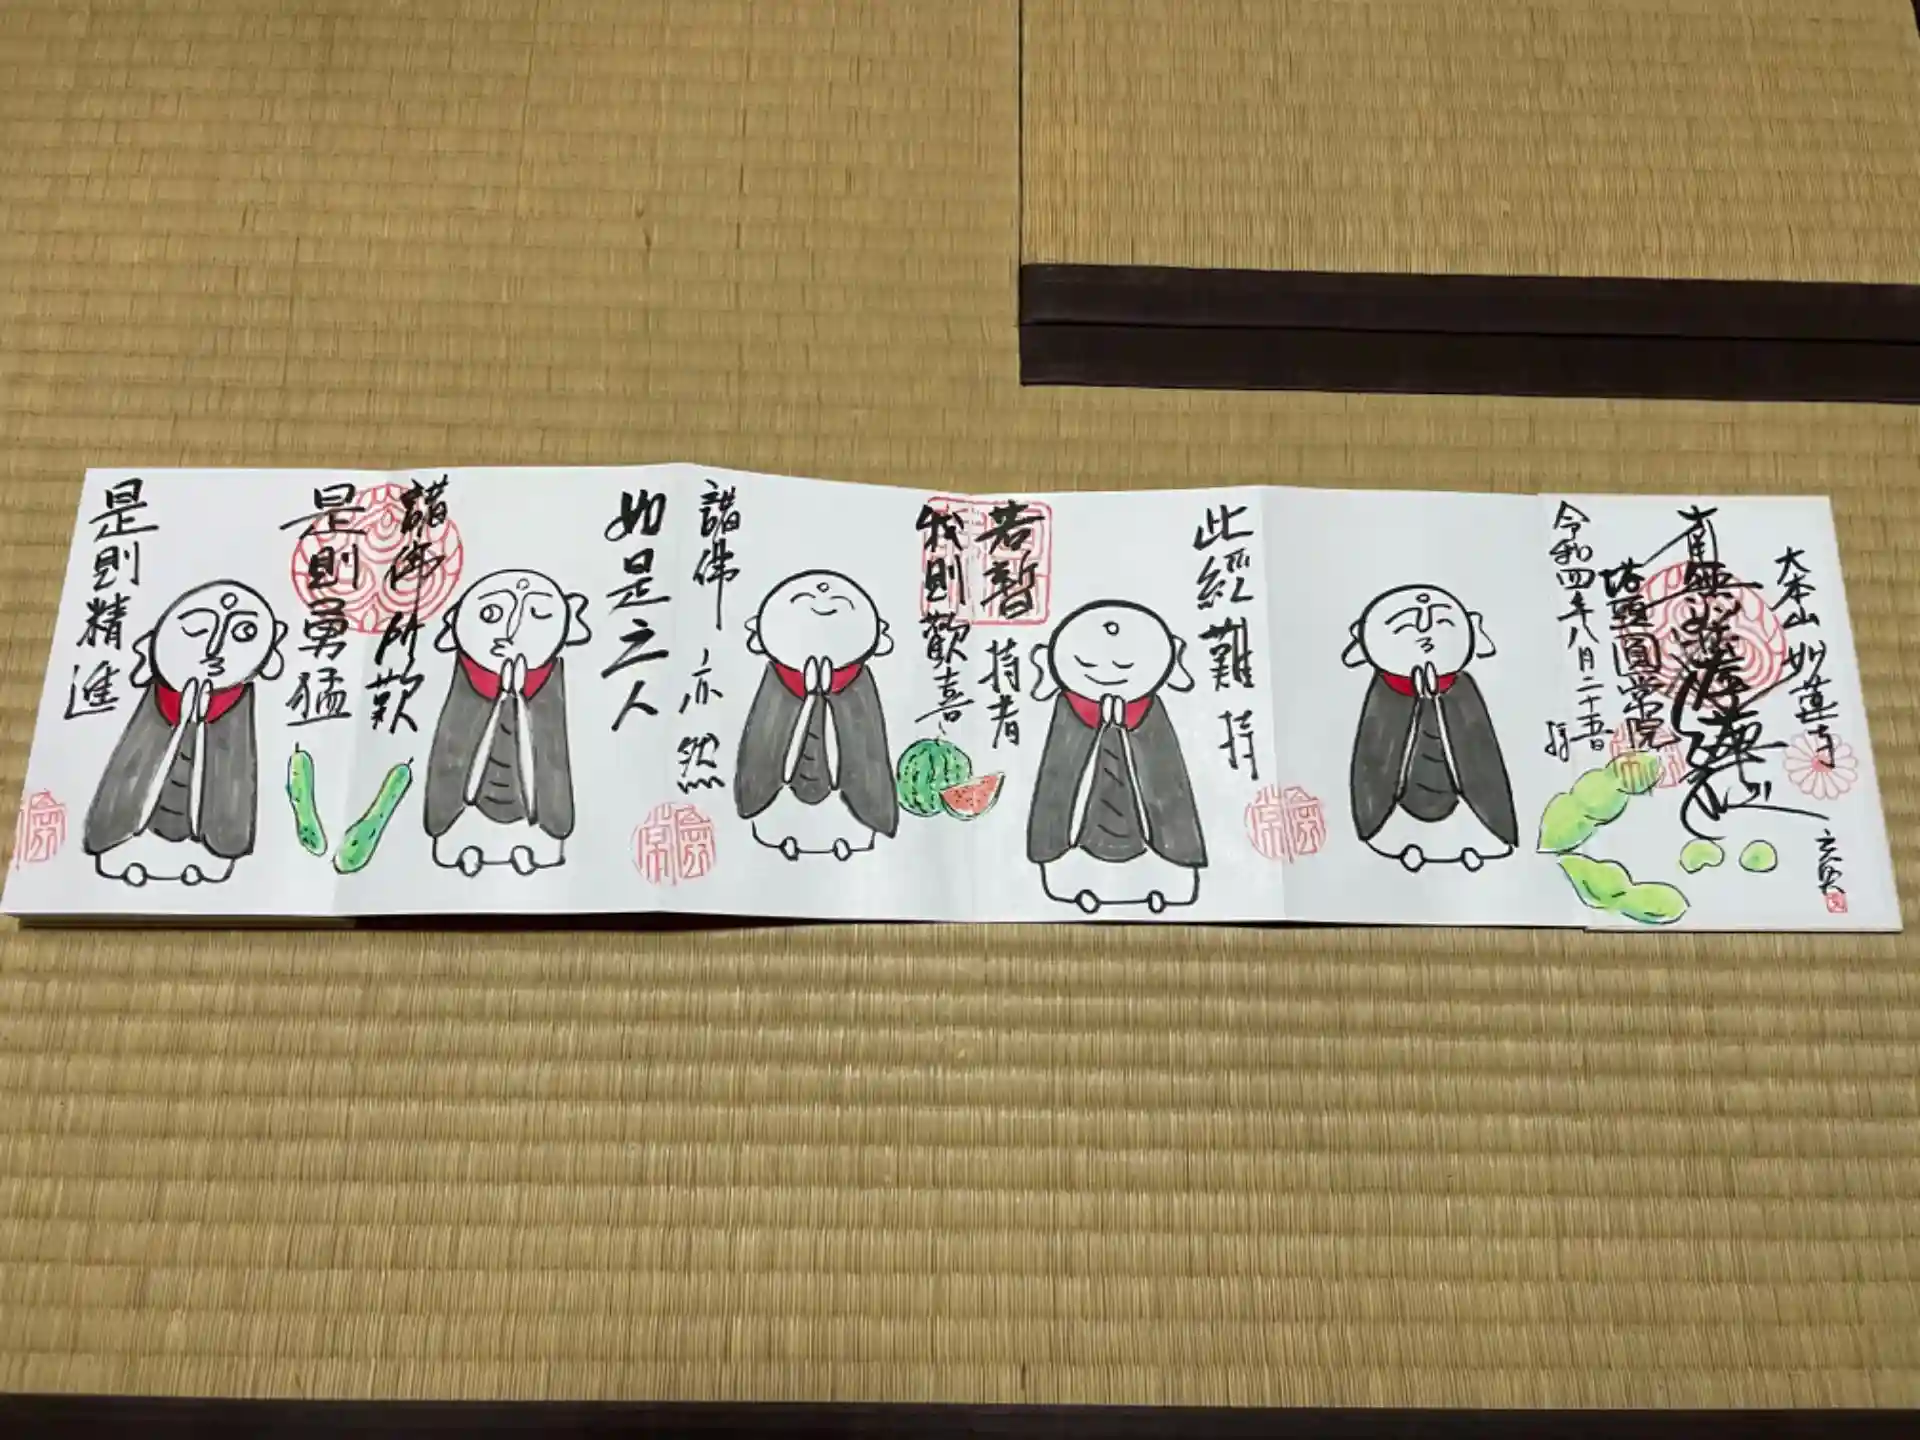 大本山妙蓮寺
南無妙法蓮華経
塔頭圓常院
令和四年八月二十五日
此經難持
若暫持者
我則歡喜
諸佛亦然
如是之人
諸佛所歎
是則勇猛
是則精進